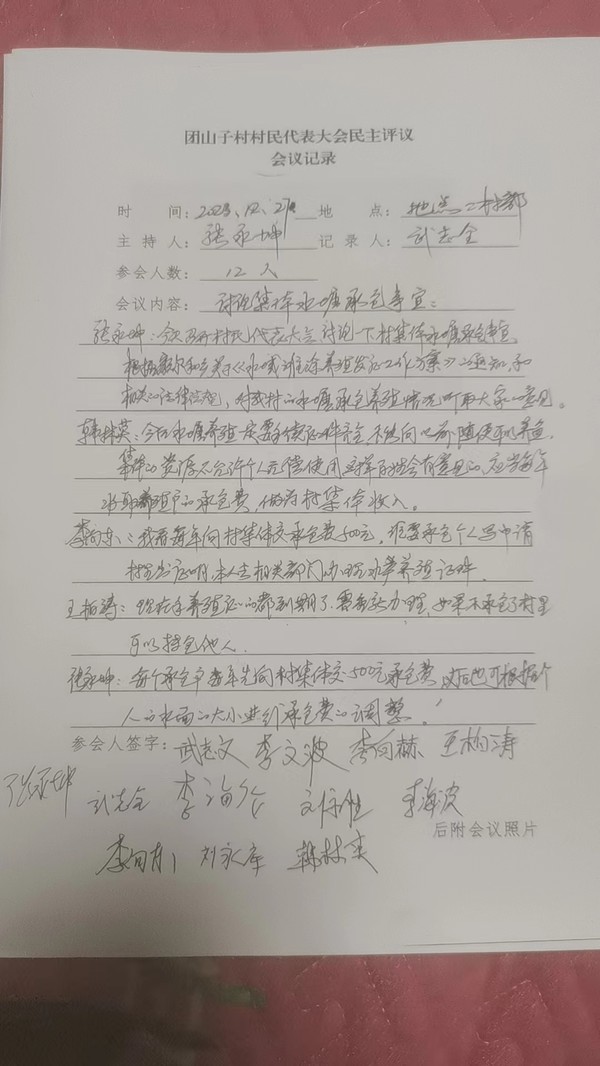 团山子村村民代表大会民主评议
会议记录
时 间:2023、12、27日 地 点:地点:村部
主持人:张永坤 记录人:武志全
参会人数: 12人
会议内容: 讨论集体水塘承包事宜:
张永坤:今天召开村民代表大会讨论一下村集体水塘承包事宜。
根据 和乡关于《水域滩涂养殖发证工作方案》的通知和
相关的法律法规,对我村的水塘承包养殖情况听取大家的意见。
韩林英:今后水塘养殖一定要手续证件齐全,不能向以前随便可以养鱼,
集体的资源不允许个人无偿使用,这样百姓会有意见的,应当每年
收取养殖户的承包费,做为村集体收入。
李向东:我看每年向村集体交承包费500元,谁要承包个人写申请
村里出证明,本人去相关部门办理水产养殖证件。
王柏涛:现在手养殖证的都到期了,需重新办理,如果不承包了村里
可以转包他人。
张永坤:每个承包户每年先向村集体交500元承包费,以后也可根据个
人的水面的大小进行承包费的调整。
参会人签字:武志文 李文波 李向赫 王柏涛
张永坤 武志全 李海 刘 李海波
后附会议照片
李向东 刘永库 韩林英